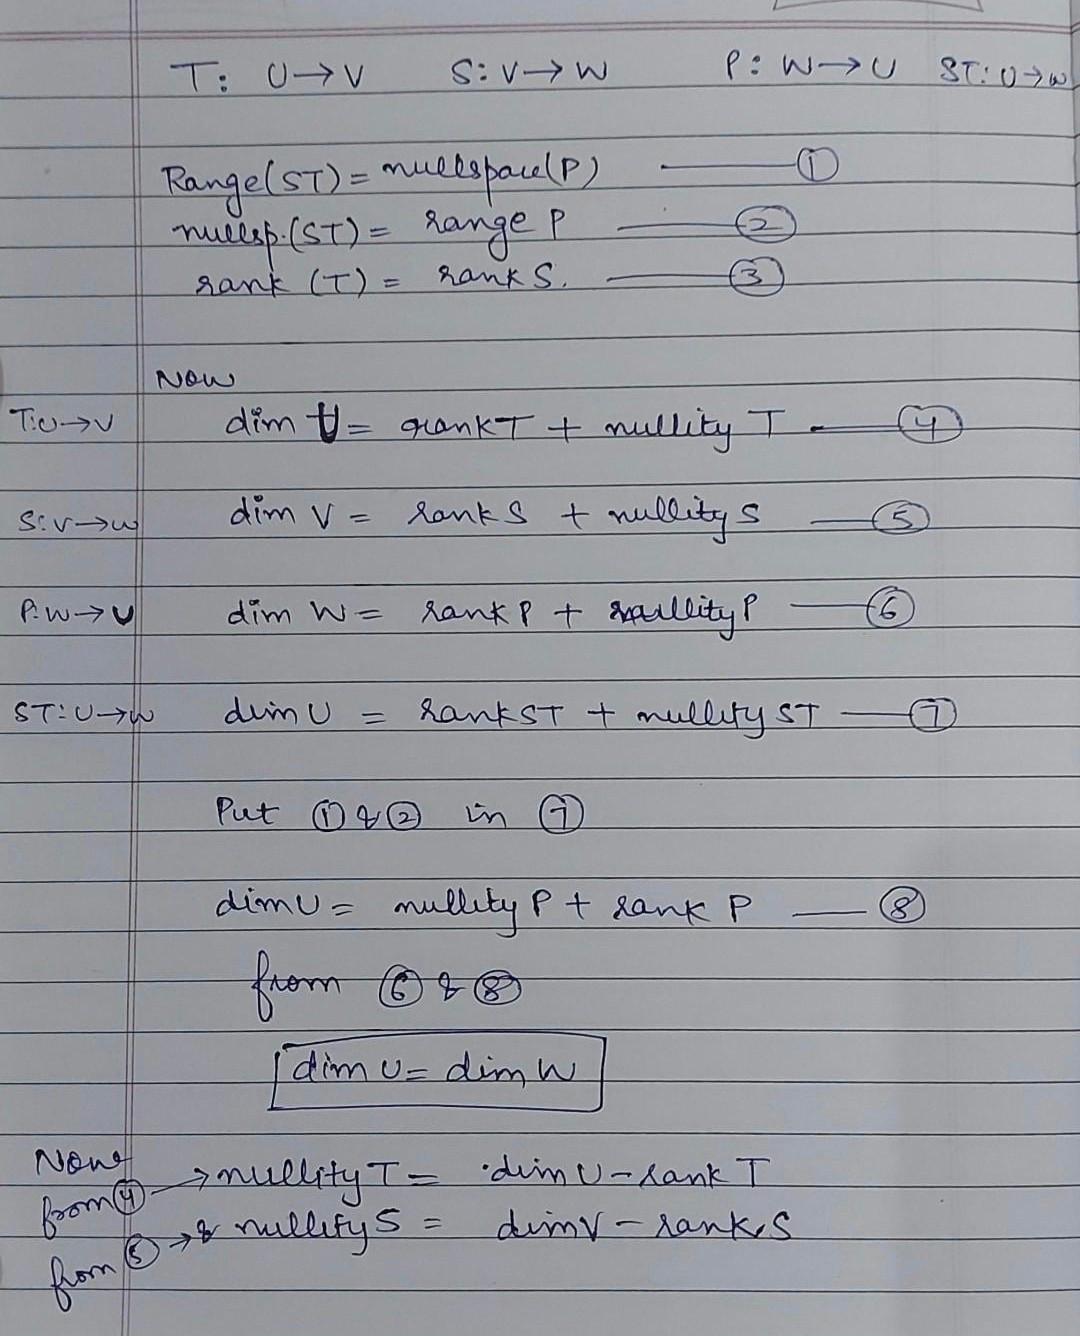 T: U→V S: V→W P: W→U ST: U→W
Range(ST) = nullspace(P) — ①
nullsp.(ST) = range P — ②
rank (T) = rank S. — ③
Now
T:U→V dim U = rank T + nullity T — ④
S:V→W dim V = rank S + nullity S — ⑤
P:W→U dim W = rank P + nullity P — ⑥
ST:U→W dim U = rank ST + nullity ST — ⑦
Put ① & ② in ⑦
dim U = nullity P + rank P — ⑧
from ⑥ & ⑧
dim U = dim W
Now
from ④ → nullity T = dim U - rank T
from ⑤ → & nullity S = dim V - rank S